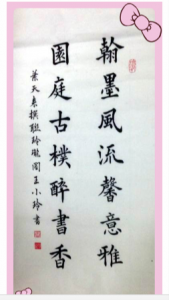 翰墨風流馨意雅
園庭古樸醉書香
葉天泰撰聯玲瓏閣王小玲書